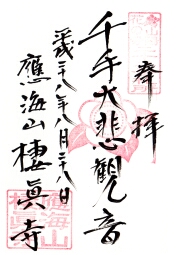 奉拝
千手大悲観音
平成二十八年八月二十八日
應海山棲眞寺